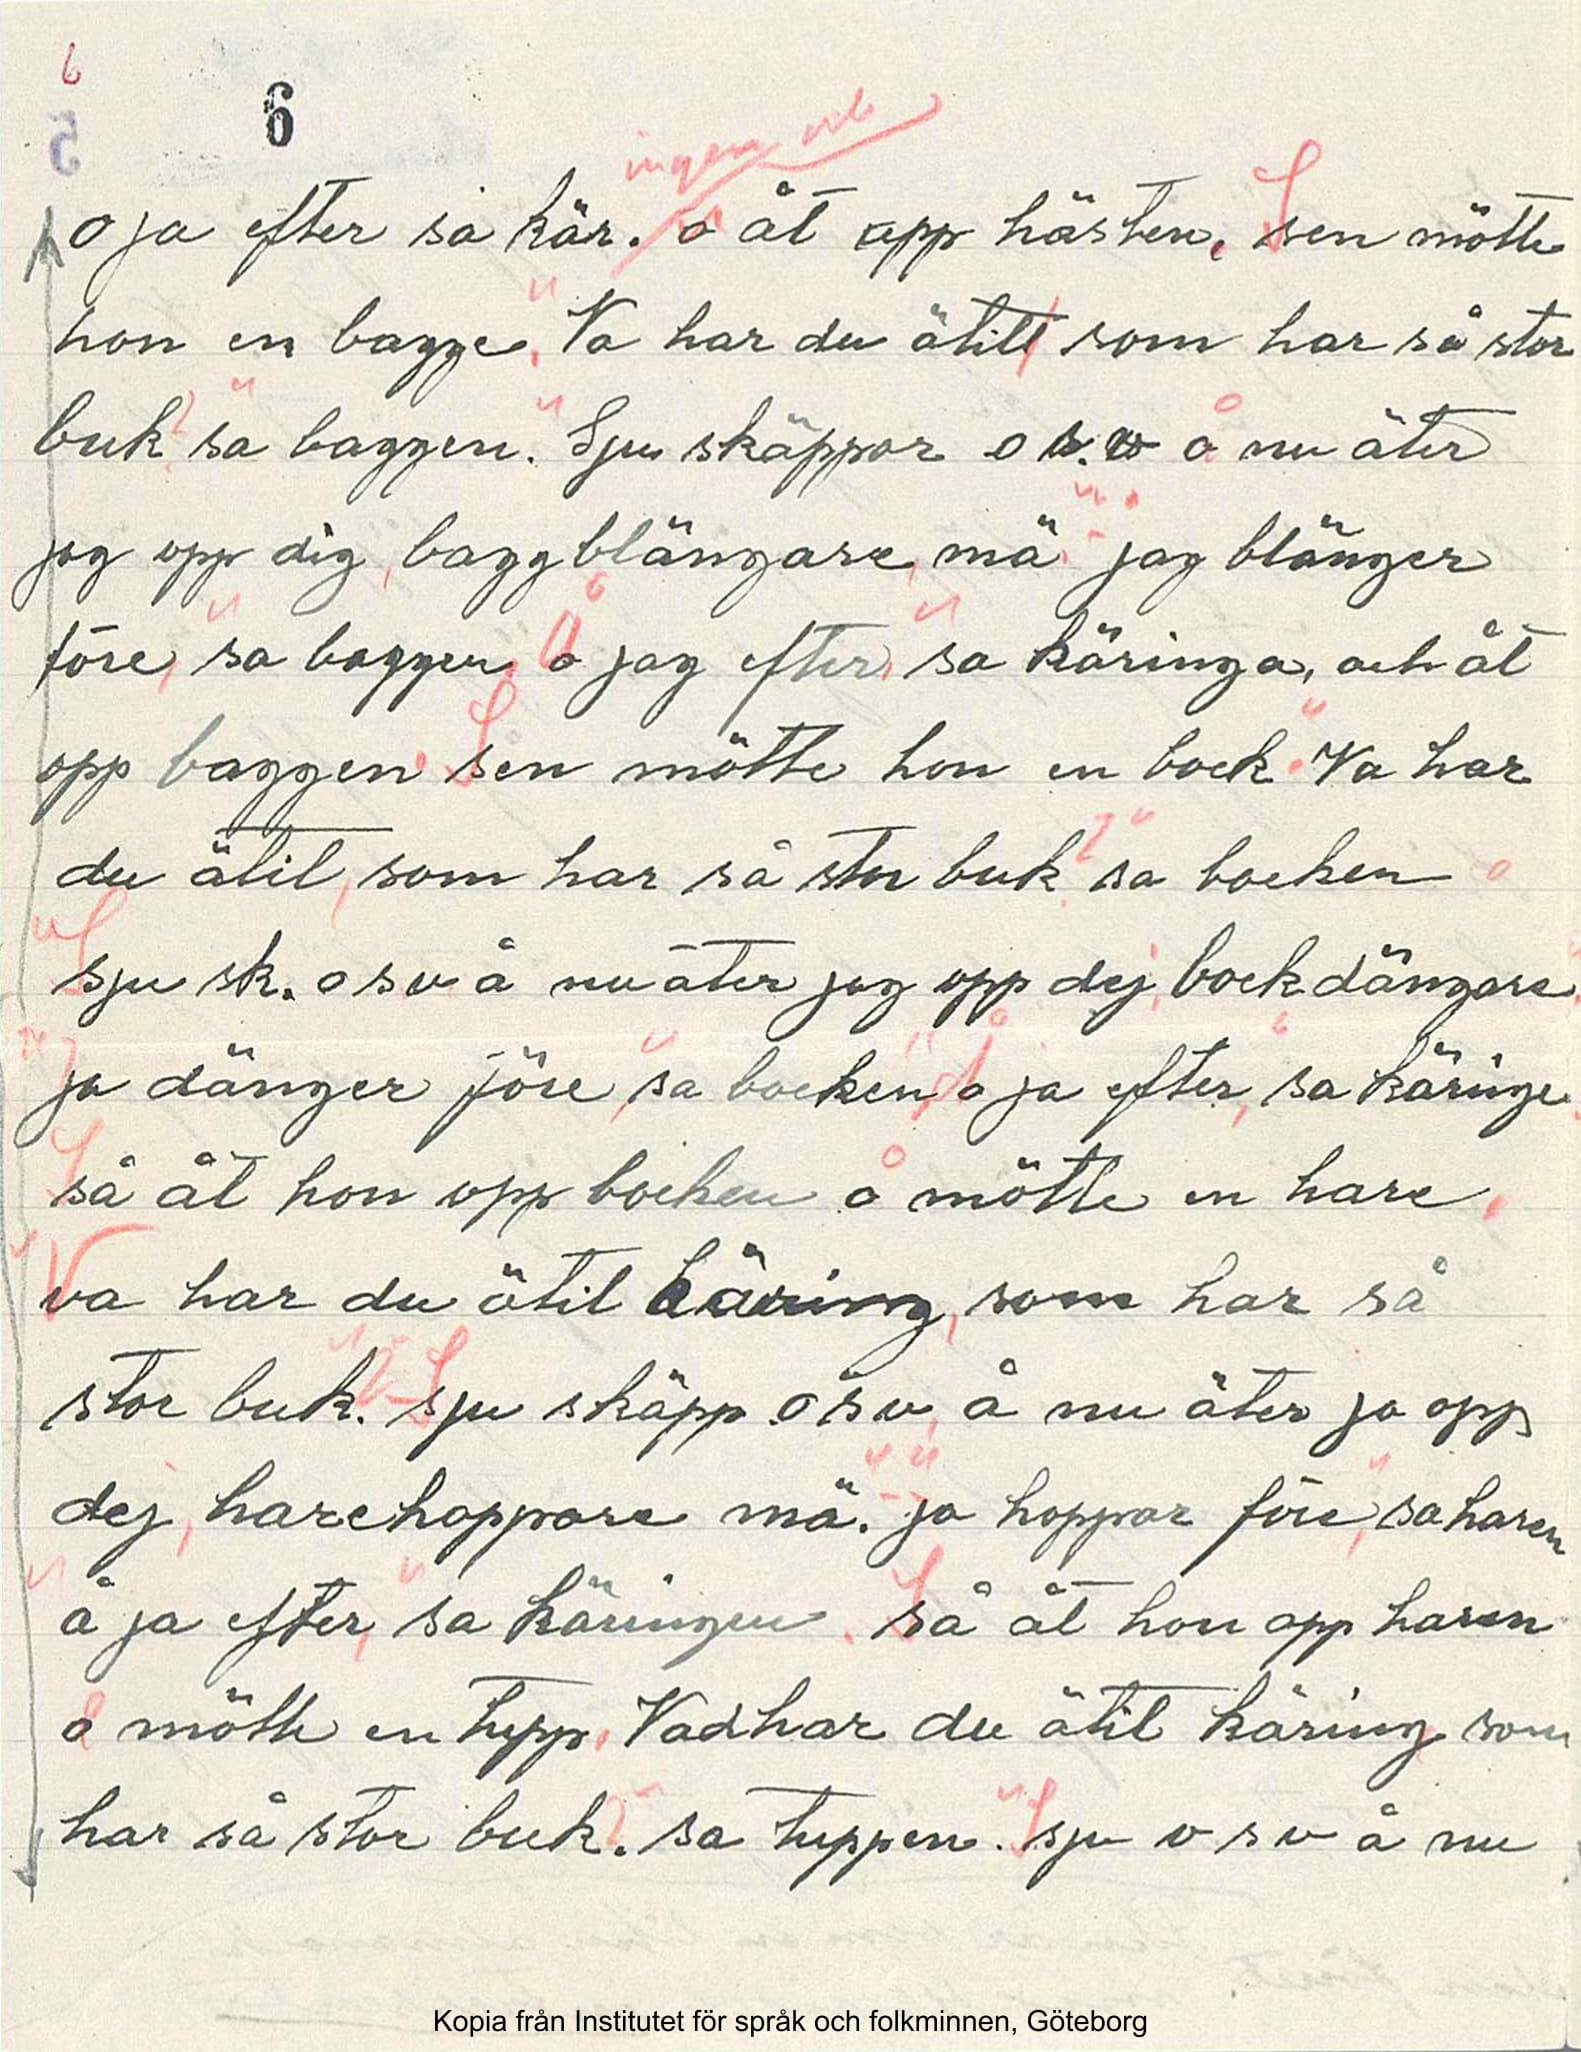 6
5
6
ingen
o ja efter sa kär. o åt opp hästen. sen mötte
hon en bagge. Va har du ätitt som har så stor
buk sa baggen. Sju skäppor o s. v o nu äter
jag opp dig, baggblängare, mä jag blänger
före, sa baggen, o jag efter, sa käringa, och åt
opp baggen. Sen mötte hon en bock. Va har
du ätil, som har så stor buk? sa bocken
sju sk. o s v å nu äter jag opp dej, bockdängare
ja dänger före, sa bocken, o ja efter, sa käringe
så åt hon opp bocken o mötte en hare.
va har du ätil käring, som har så
stor buk. sju skäpp o s v, å nu äter ja opp
dej, harehoppare mä. ja hoppar före, sa haren
å ja efter, sa käringen. så åt hon opp haren
o mötte en tupp. Vad har du ätil käring som
har så stor buk. sa tuppen. sju o s v å nu
Kopia från Institutet för språk och folkminnen, Göteborg